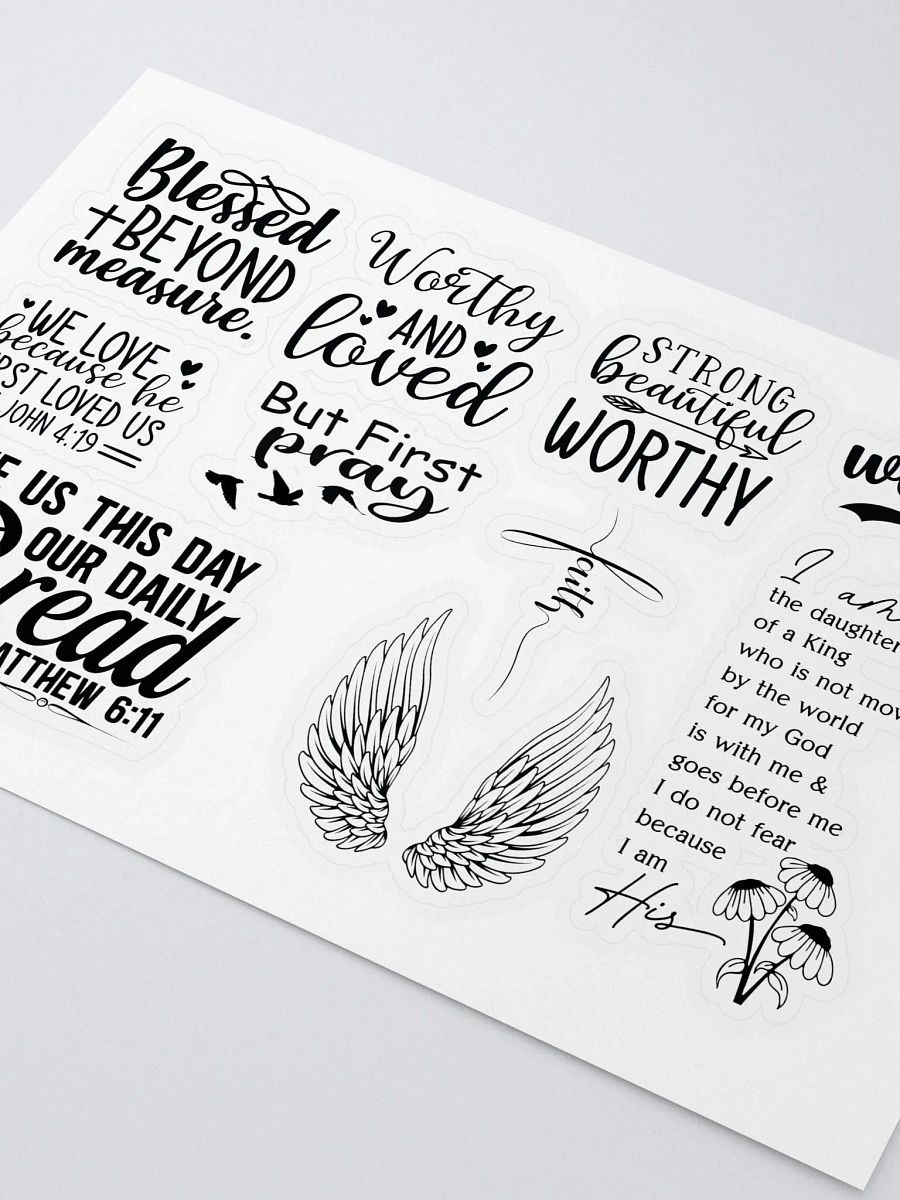 Blessed
BEYOND
measure.
Worthy
AND
loved
STRONG
beautiful
WORTHY
WE LOVE
because he
LOVED US
JOHN 4:19
But First
pray
US THIS DAY
OUR DAILY
6:11
faith
I am
the daughter
of a King
who is not
by the world
for my God
is with me &
goes before me
I do not fear
because
I am
His